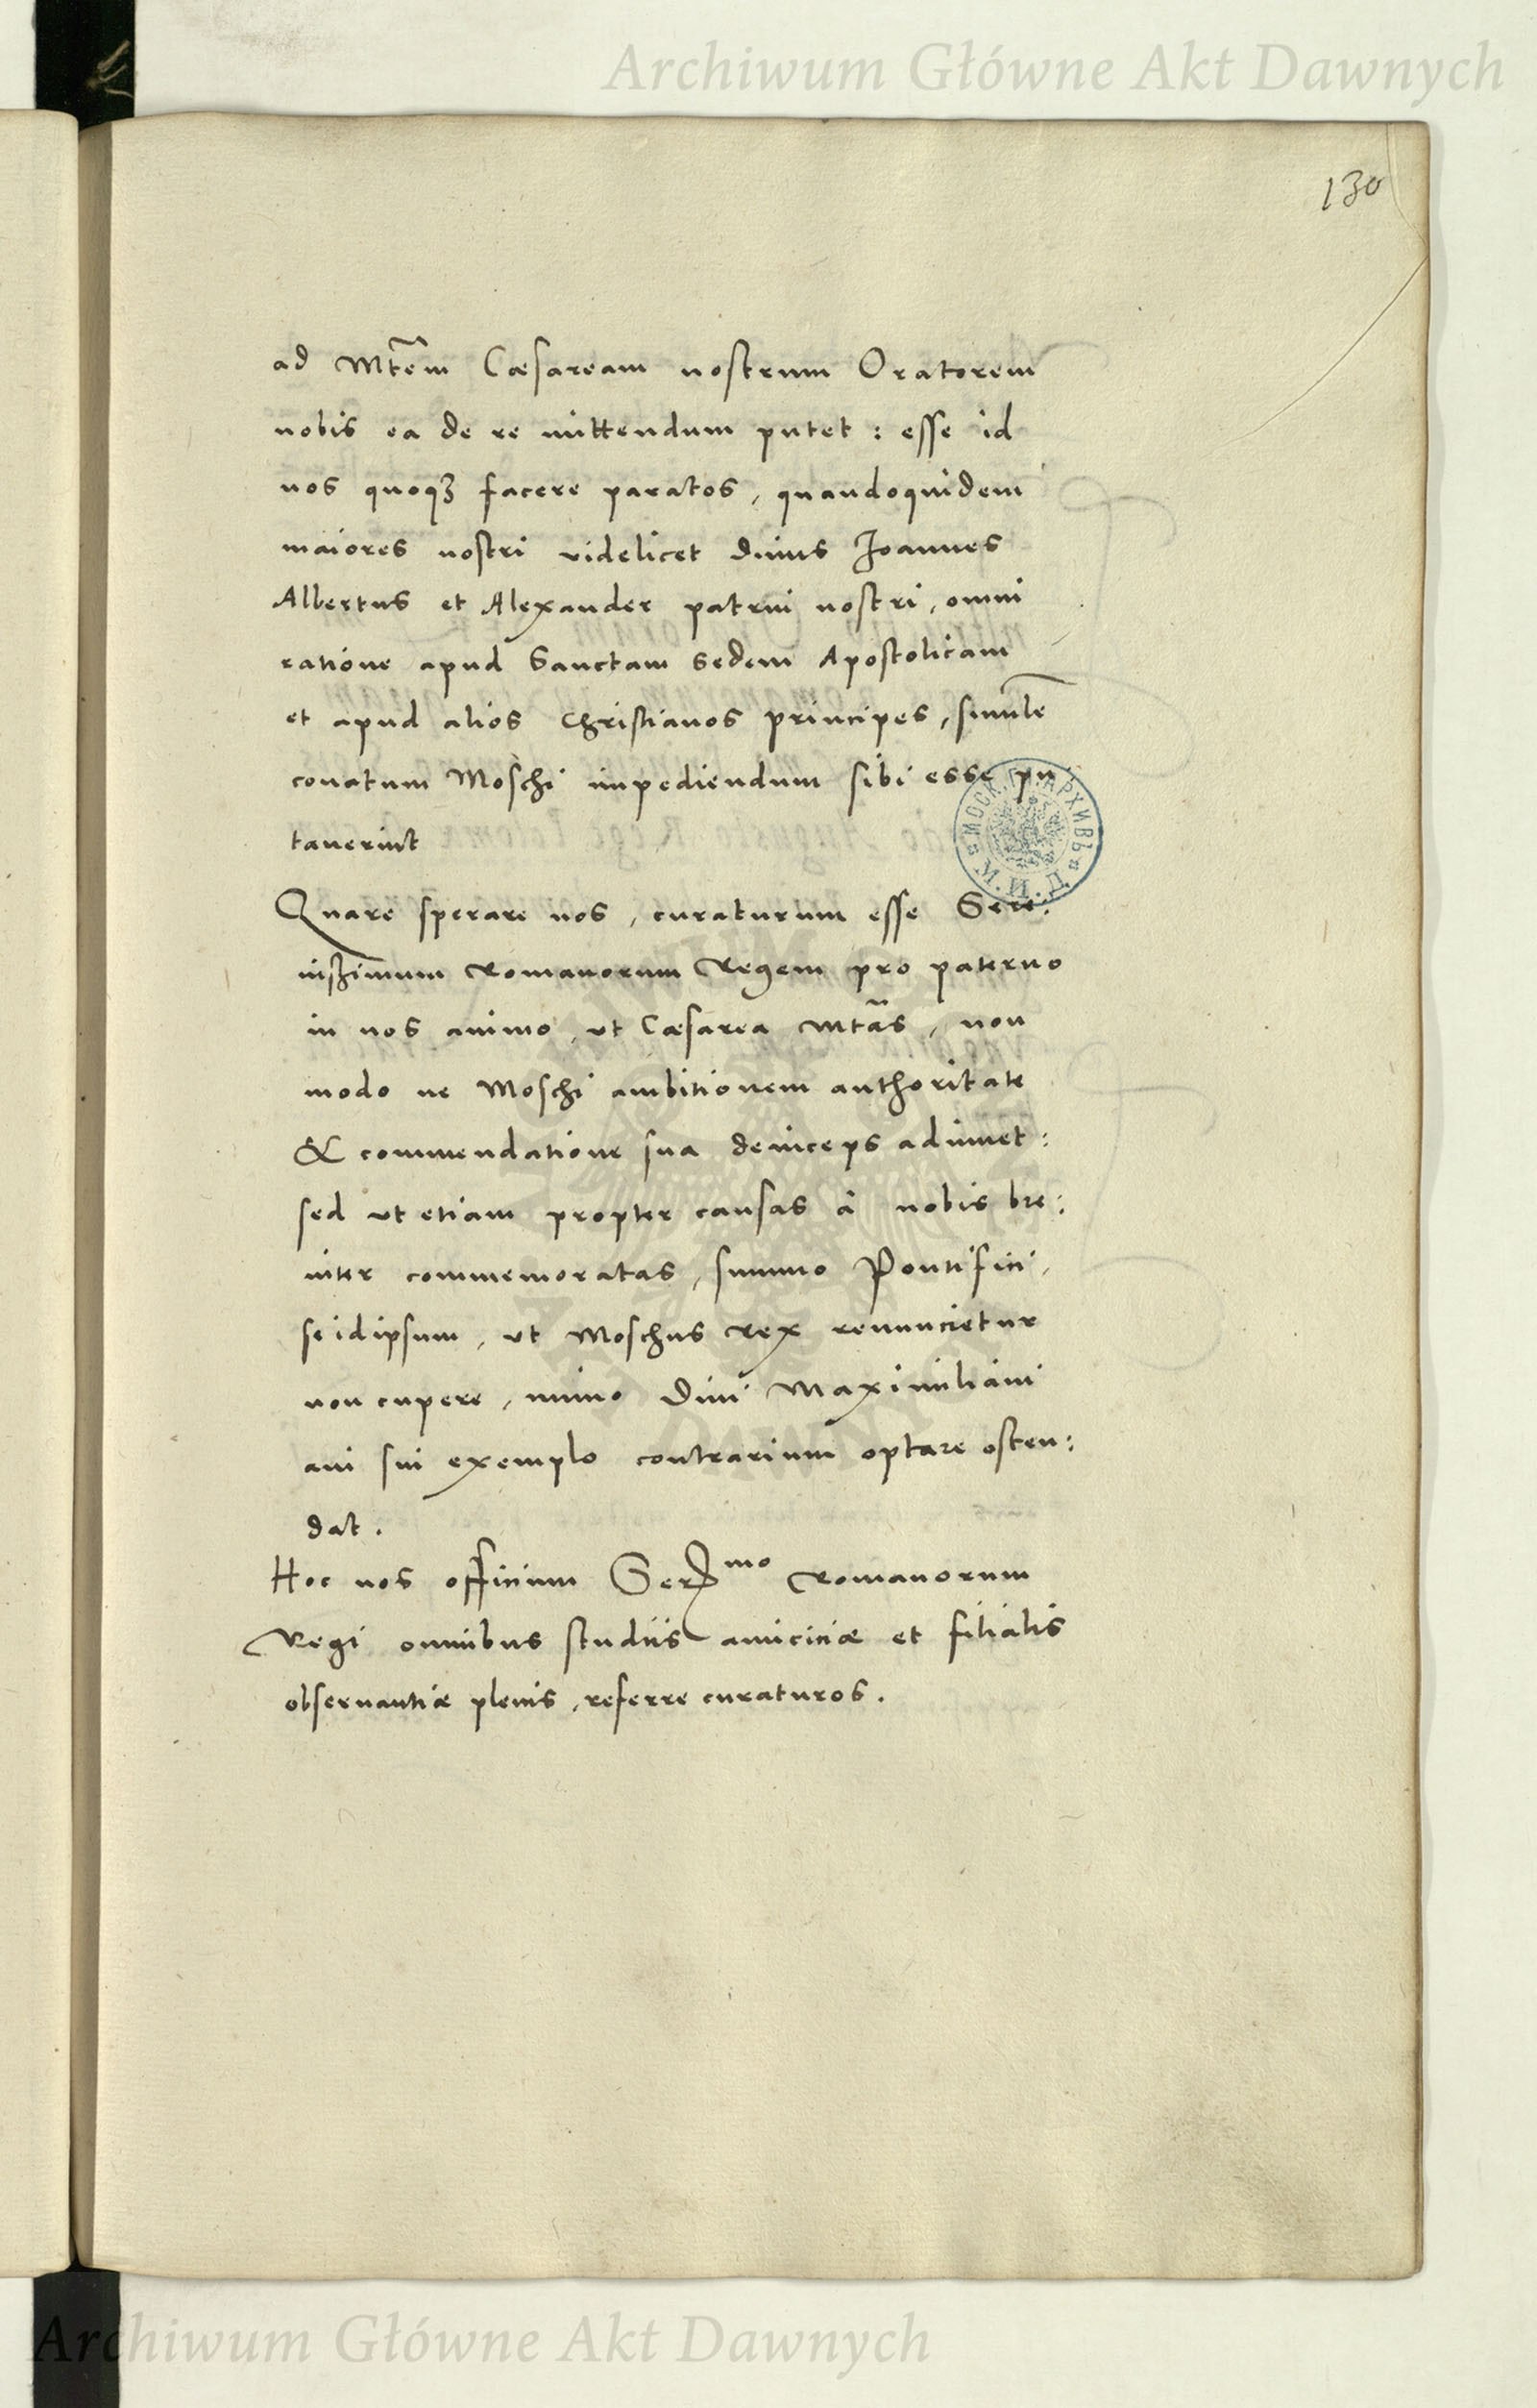 Archiwum Główne Akt Dawnych
130
ad Mtem Cæsaream nostrum Oratorem
nobis ea de re mittendum putet : esse id
nos quoqꝫ facere paratos, quandoquidem
maiores nostri videlicet diuus Joannes
Albertus et Alexander patrui nostri, omni
ratione apud Sanctam Sedem Apostolicam
et apud alios Christianos principes, simile
conatum Moschi impediendum sibi esse pu
tauerint
Quare sperare nos, curaturum esse Sere:
nissimum Romanorum Regem pro paterno
in nos animo, ut Cæsarea Mtas, non
modo ne Moschi ambitionem authoritate
& commendatione sua deinceps adiuuet:
sed ut etiam propter causas à nobis bre:
uiter commemoratas, summo Pontifici,
se idipsum, ut Moschus rex renuncietur
non cupere, immo Diui Maximiliani
aui sui exemplo contrarium optare osten:
dat.
Hoc nos officium Ser.mo Romanorum
Regi omnibus studiis amiciciæ et filialis
obseruantiæ plenis, referre curaturos.
МОСК. ГЛ. АРХИВЪ
М. И. Д.
Archiwum Główne Akt Dawnych